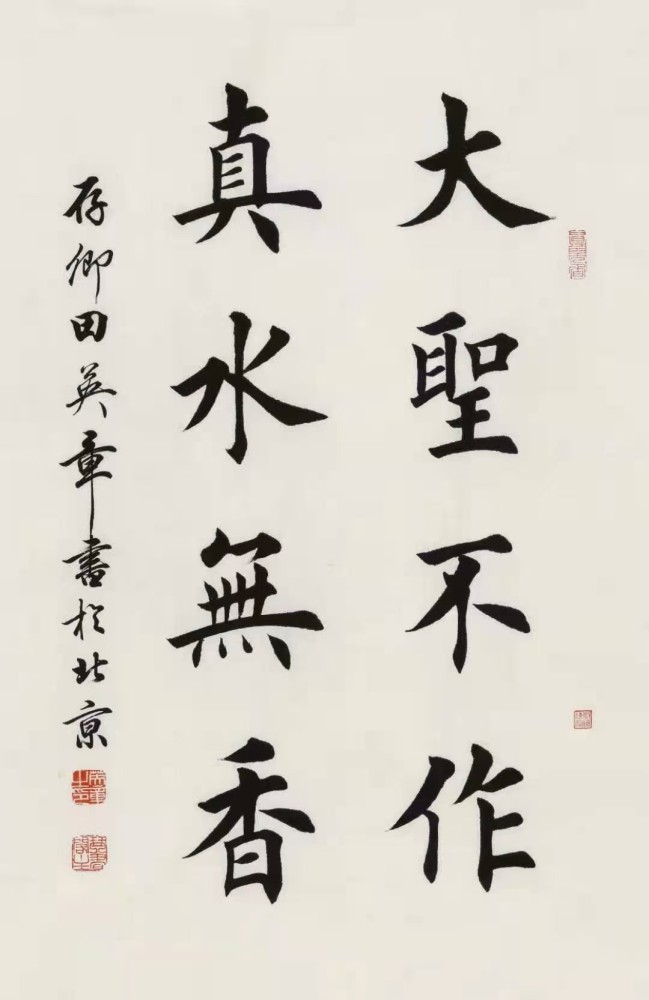 大聖不作
真水無香
存卿田英章書於北京